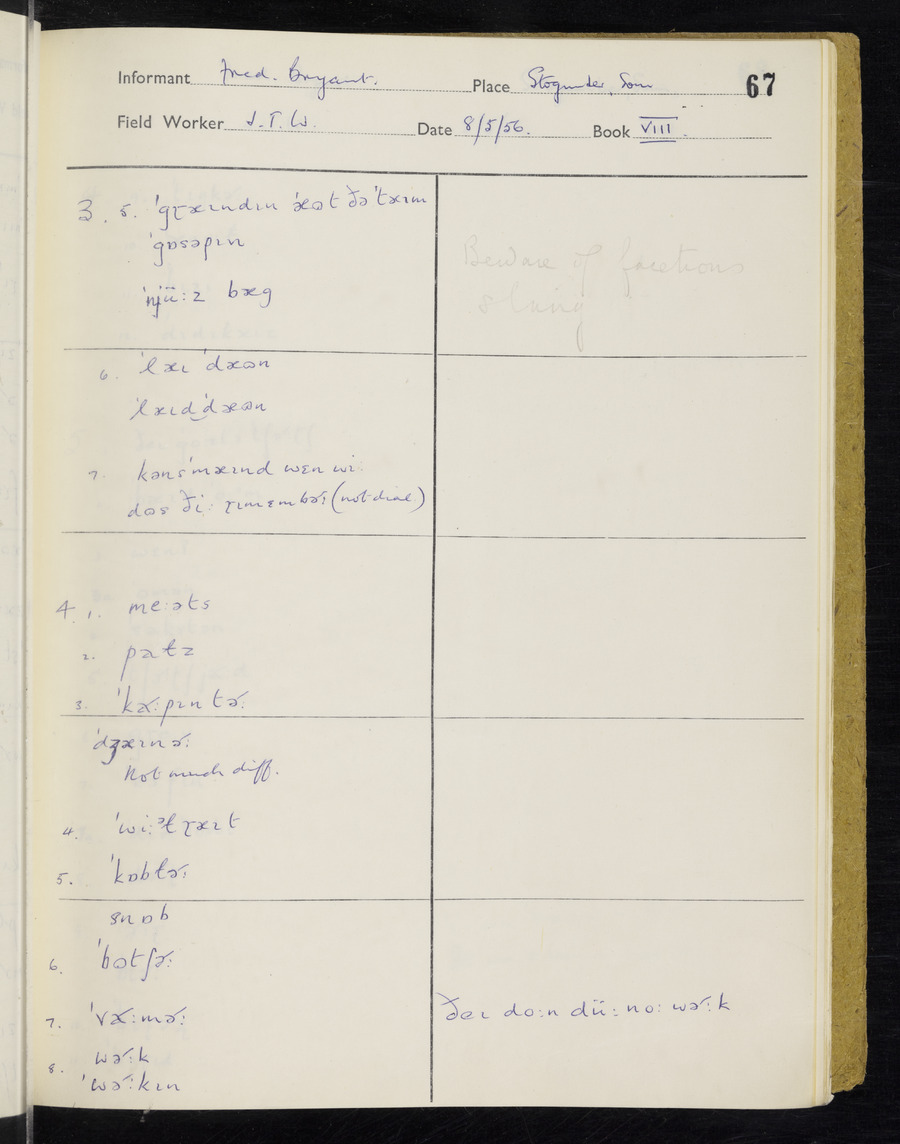 Informant Fred. Bryant. Place Stogumber, Som 67
Field Worker J.T.W. Date 8/5/56. Book VIII.
3. 5. ˈgɽæɪndɪn ˈæɷt ðəˈtæɪm
ˈgɒsəpɪn
ˈnjüːz bæg
Beware of facetious
slang
6. ˈlæɪ ˈdæɷn
ˈlæɪdˈdæɷn
7. kənsˈmæɪnd wɛn wi
dɷs ðiː ɽɪmɛmbəʴː (not dial)
4. 1. meːəts
2.
3. ˈkaʴːpɪntəʴː
ˈdʒæɪnəʴː
Not much diff.
4. ˈwiːᵊɫɽæɪt
5. ˈkɒbɫəʴː
snɒb
6. ˈbɷtʃəʴː
7. ˈvaʴːməʴː ðeɪ doːn düː noː wəʴːk
8. wəʴːk
ˈwəʴːkɪn